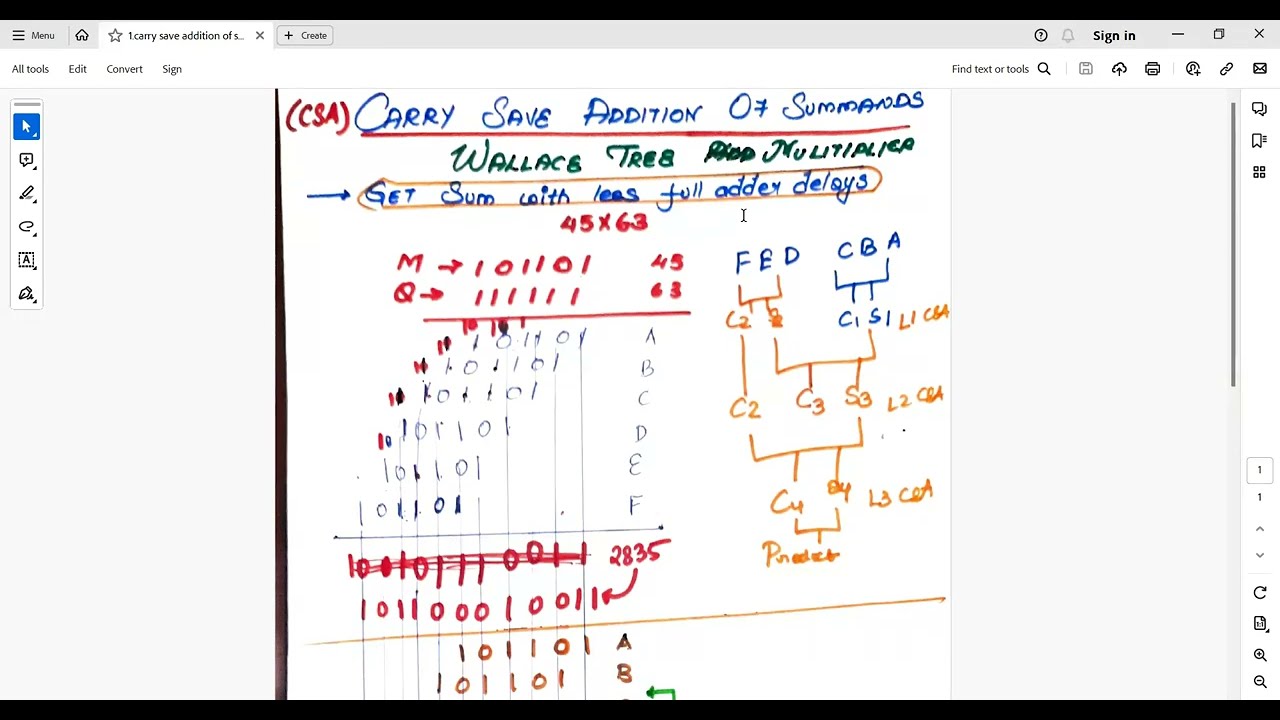 Menu
1.carry save addition of s...
Create
Sign in
All tools Edit Convert Sign
Find text or tools
(CSA) CARRY SAVE ADDITION OF SUMMANDS
WALLACE TREE MULITIPLIER
→ GET Sum with less full adder delays
45 X 63
M → 101101 45
Q → 111111 63
101101 A
101101 B
101101 C
101101 D
101101 E
101101 F
2835
101100010011
101101 A
101101 B
F E D C B A
C2 S2 C1 S1 L1 CSA
C2 C3 S3 L2 CSA
C4 S4 L3 CSA
Product
1
1